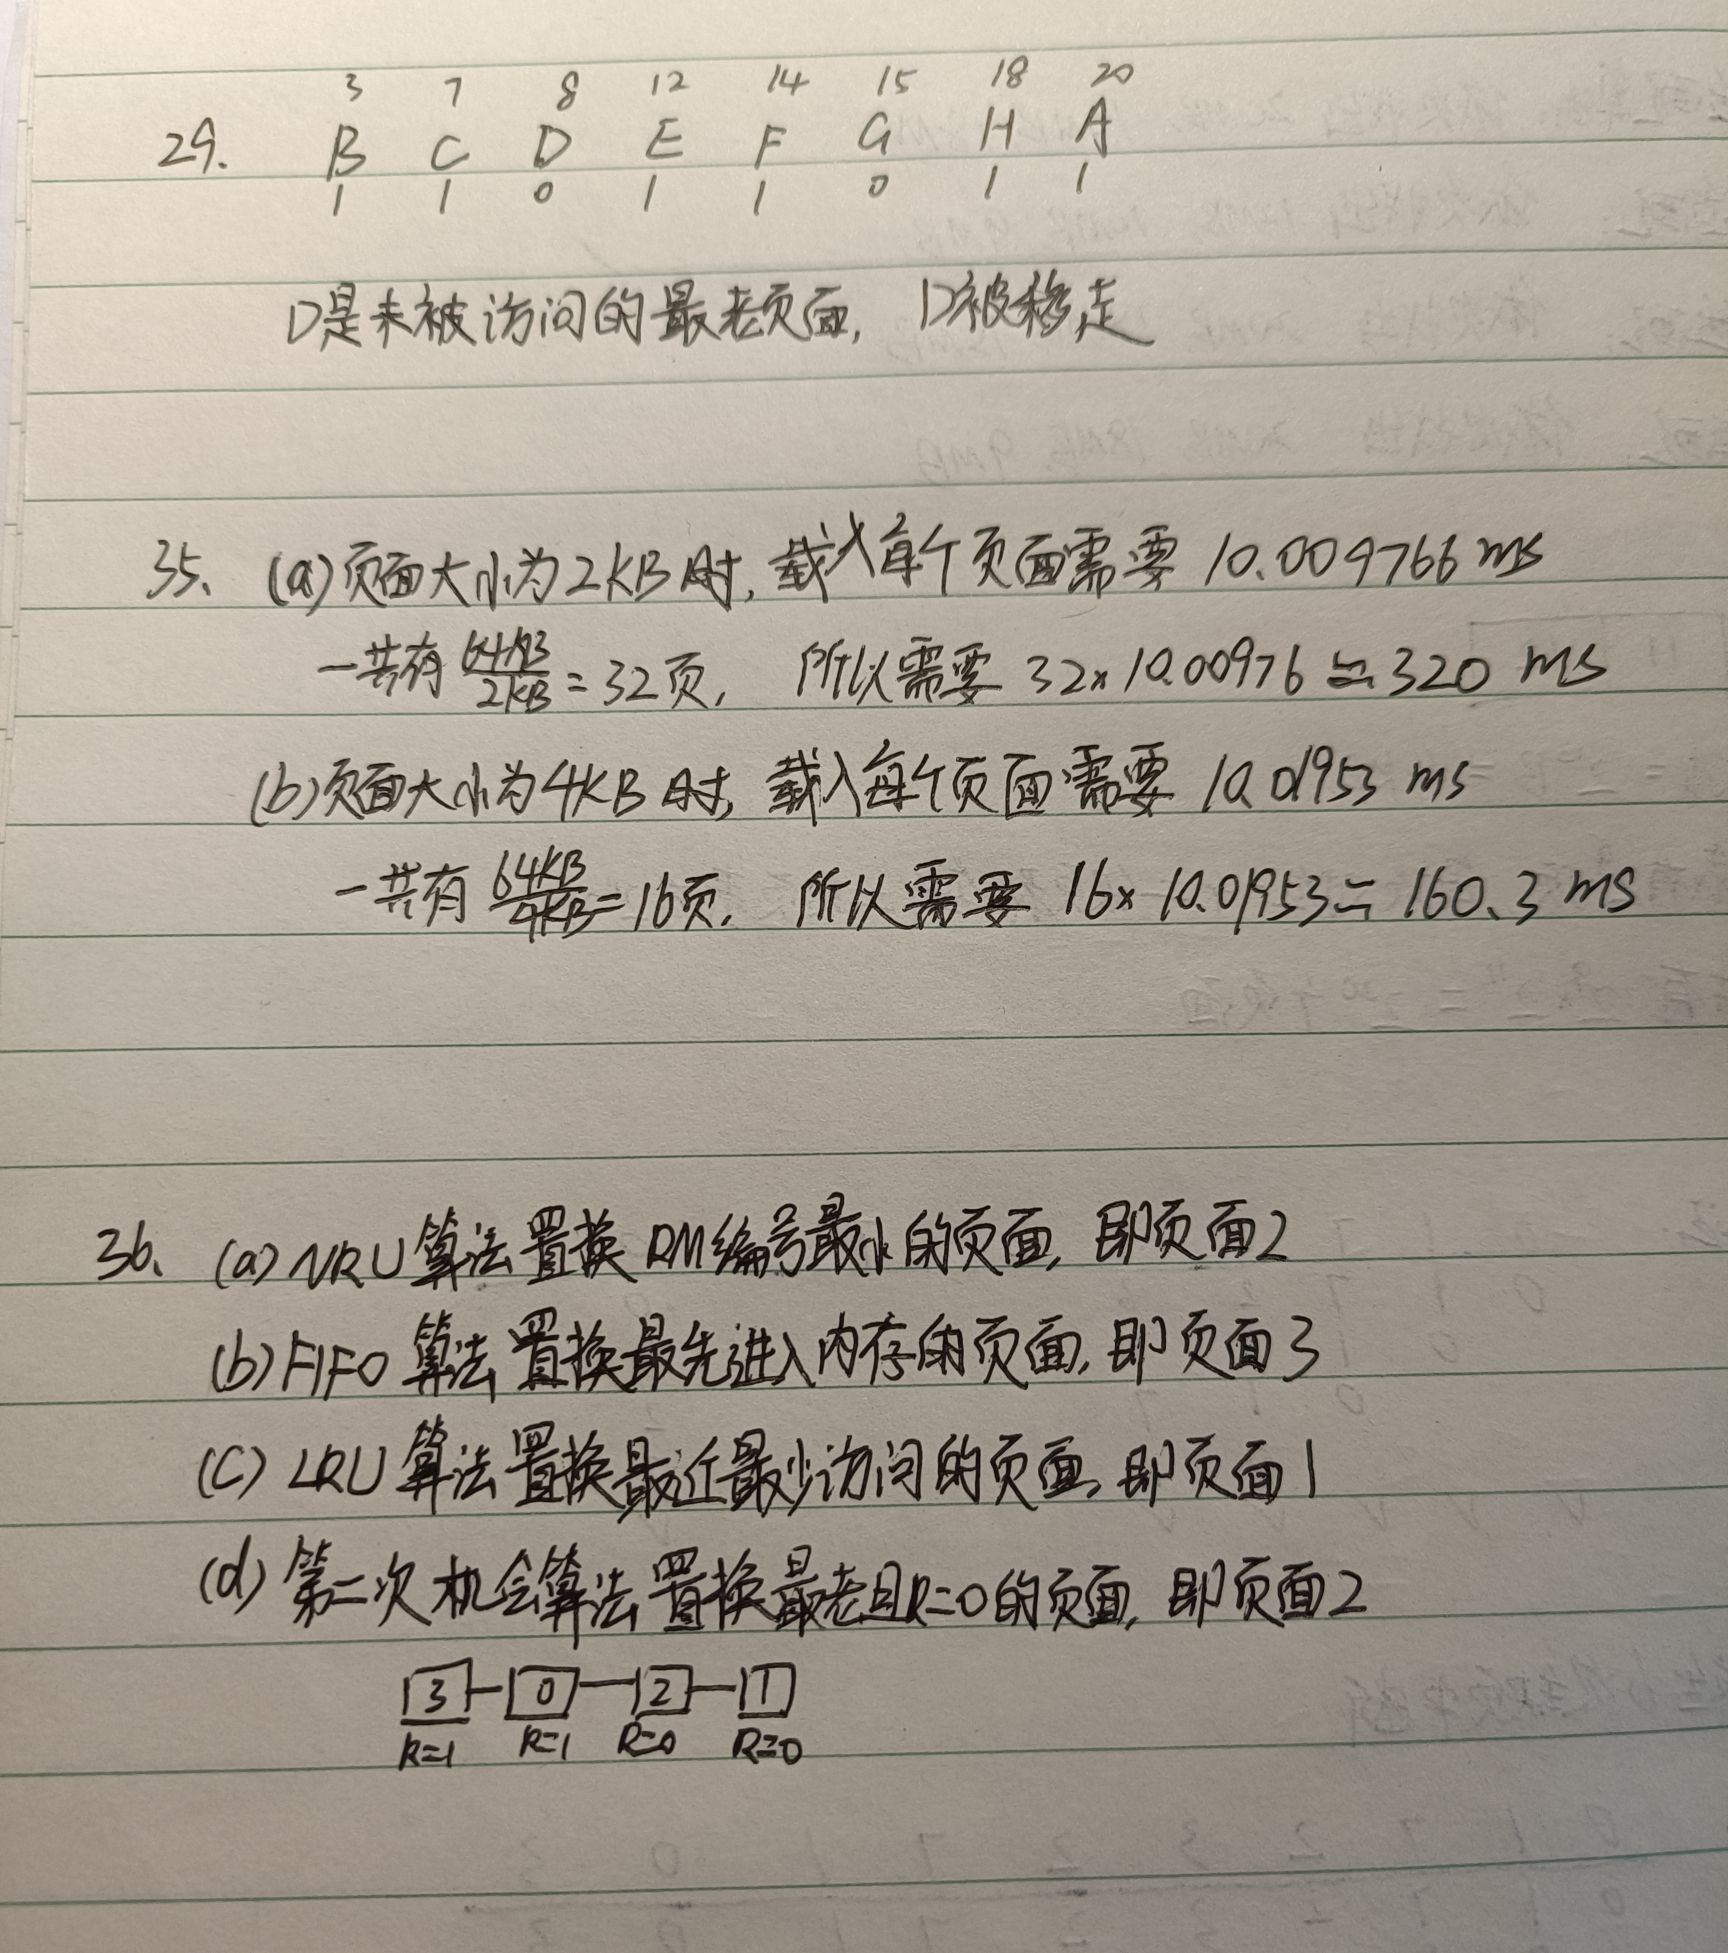 3 7 8 12 14 15 18 20
29. B C D E F G H A
1 1 0 1 1 0 1 1
D是未被访问的最老页面, D被移走
35. (a)页面大小为2KB时, 载入每个页面需要 10.009766ms
一共有 64KB/2KB = 32页, 所以需要 32×10.00976 ≈ 320 ms
(b)页面大小为4KB时, 载入每个页面需要 10.01953 ms
一共有 64KB/4KB = 16页. 所以需要 16× 10.01953 ≈ 160.3 ms
36. (a) NRU算法置换RM编号最小的页面, 即页面2
(b) FIFO 算法置换最先进入内存的页面, 即页面3
(c) LRU 算法置换最近最少访问的页面, 即页面1
(d) 第二次机会算法置换最老且R=0的页面, 即页面2
3 0 2 1
R=1 R=1 R=0 R=0